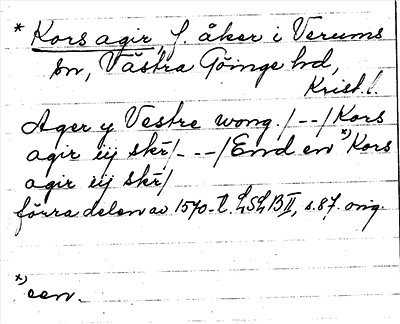 * Kors agir, f. åker i Verums
sn, Västra Göinge hd,
Krist.l.
Ager y Vestre wong. /--/ Kors
agir iij skr̄/---/ End en x) Kors
agir iij skr̄/
förra delen av 1570-t. LSLB II, s.87. orig.
x) een.